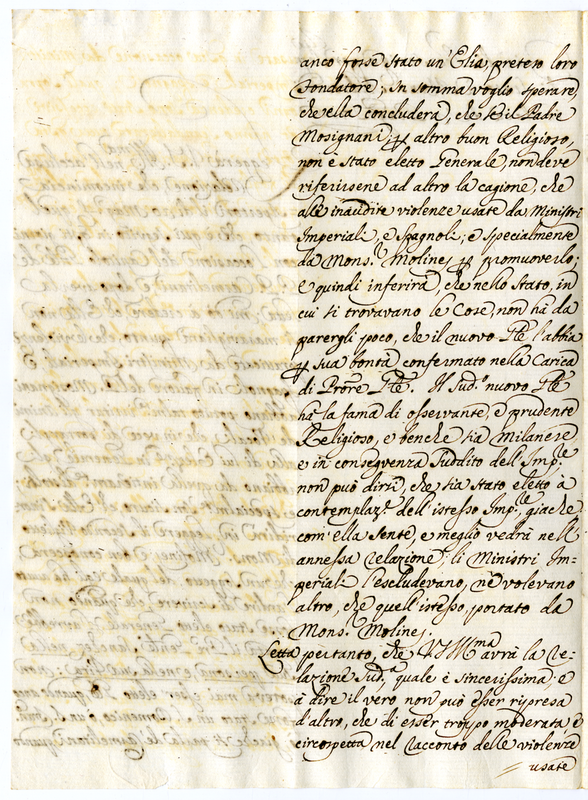 anco fosse stato un' Elia, preteso loro
Fondatore; In somma voglio sperare,
che ella concluderà, che se il Padre
Mosignani, p altro buon Religioso,
non è stato eletto Generale, non deve
riferirsene ad altro la cagione, che
alle inaudite violenze usate da Ministri
Imperiali, e Spagnoli; e specialmente
da Mons.r Molines p promuoverlo;
e quindi inferirà, che nello stato, in
cui si trovavano le Cose, non hà da
parergli poco, che il nuovo Gle l'abbia
p sua bontà confermato nella Carica
di Prore Gle. Il Sud.o nuovo Gle
hà la fama di osservante, e prudente
Religioso, e benche sia Milanese
e in conseguenza suddito dell' Imp.re
non può dirsi, che sia stato eletto à
contemplaz.e dell' istesso Imp.re, giache
com' ella sente, e meglio vedrà nell'
annessa relazione, li Ministri Im-
periali l'escludevano, nè volevano
altro, che quell' istesso, portato da
Mons.r Molines.
Letta pertanto, che V.S. Ill.ma avrà la re-
lazione Sud.a quale è sincerissima; e
à dire il vero, non può esser ripresa
d'altro, che di esser troppo moderata, e
circospetta nel racconto delle violenze
usate